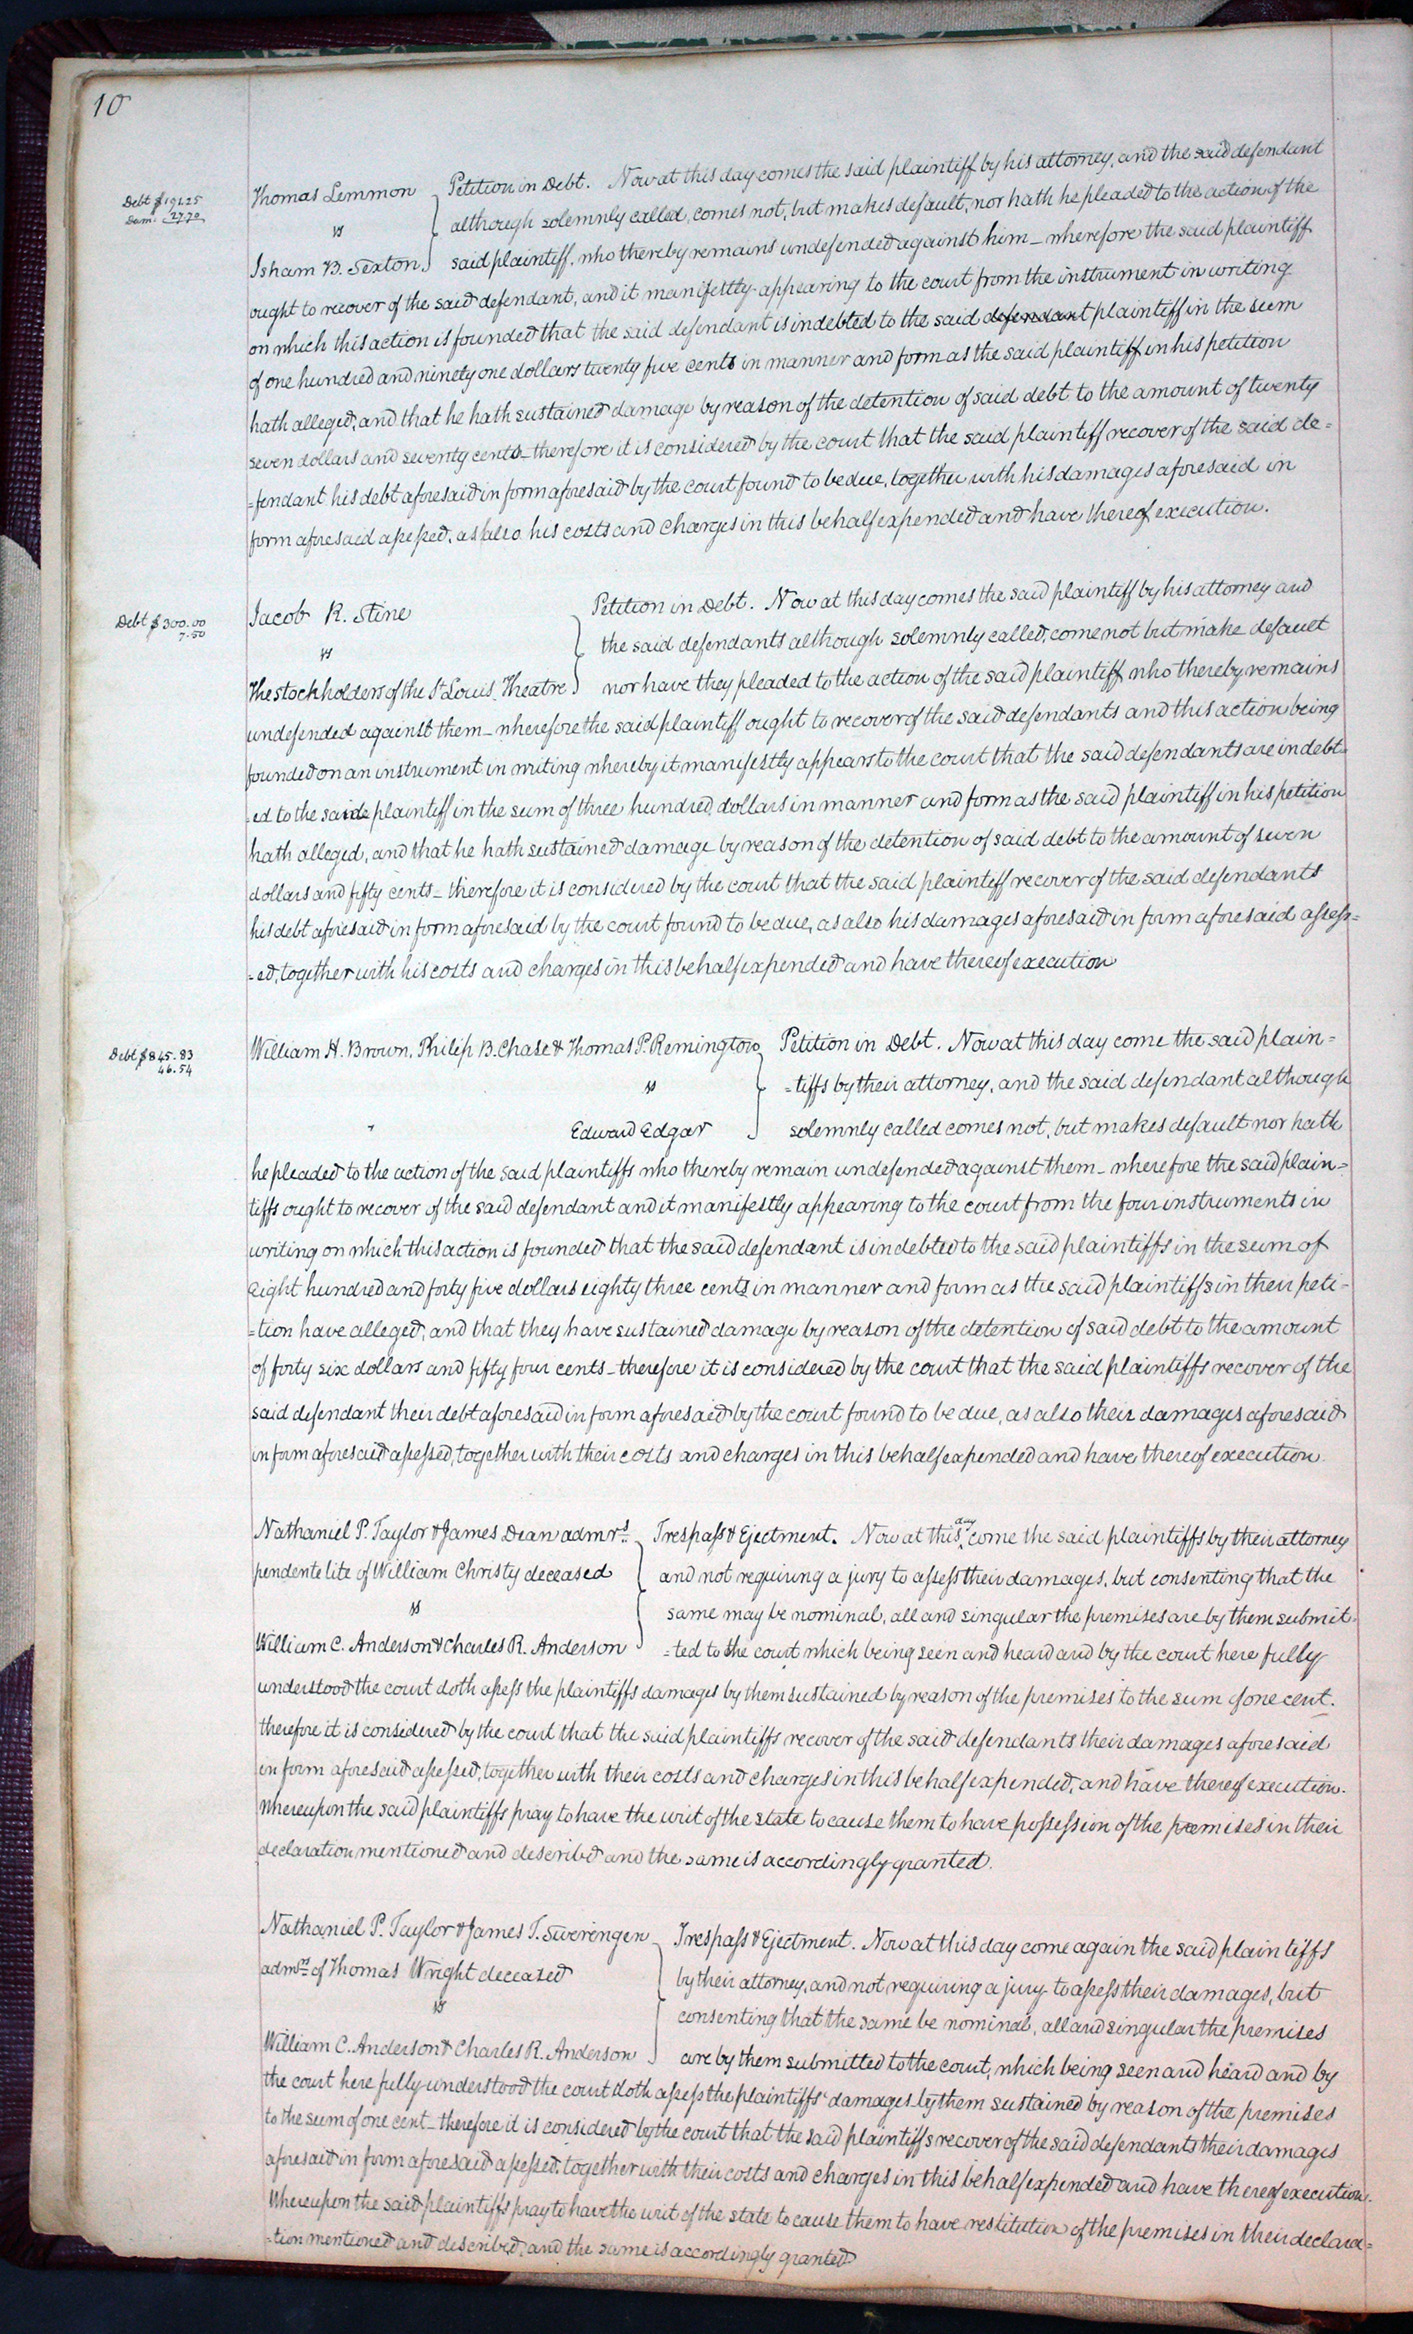 10
Debt $191.25
Dam. 27.70
Thomas Lemmon
vs
Isham B. Sexton
Petition in Debt. Now at this day comes the said plaintiff by his attorney, and the said defendant
although solemnly called, comes not, but makes default, nor hath he pleaded to the action of the
said plaintiff, who thereby remains undefended against him _ wherefore the said plaintiff
ought to recover of the said defendant, and it manifestly appearing to the court from the instrument in writing
on which this action is founded that the said defendant is indebted to the said defendant plaintiff in the sum
of one hundred and ninety one dollars twenty five cents in manner and form as the said plaintiff in his petition
hath alleged, and that he hath sustained damage by reason of the detention of said debt to the amount of twenty
seven dollars and seventy cents _ therefore it is considered by the court that the said plaintiff recover of the said de=
=fendant his debt aforesaid in form aforesaid by the court found to be due, together with his damages aforesaid in
form aforesaid assessed, as also his costs and charges in this behalf expended and have thereof execution.
Debt $300.00
7.50
Jacob R. Stine
vs
The stockholders of the St Louis Theatre
Petition in Debt. Now at this day comes the said plaintiff by his attorney and
the said defendants although solemnly called, come not but make default
nor have they pleaded to the action of the said plaintiff, who thereby remains
undefended against them _ wherefore the said plaintiff ought to recover of the said defendants and this action being
founded on an instrument in writing whereby it manifestly appears to the court that the said defendants are indebt=
=ed to the said plaintiff in the sum of three hundred dollars in manner and form as the said plaintiff in his petition
hath alleged, and that he hath sustained damage by reason of the detention of said debt to the amount of seven
dollars and fifty cents _ therefore it is considered by the court that the said plaintiff recover of the said defendants
his debt aforesaid in form aforesaid by the court found to be due, as also his damages aforesaid in form aforesaid assess=
=ed, together with his costs and charges in this behalf expended and have thereof execution
Debt $845.83
46.54
William H. Brown, Philip B. Chase & Thomas P. Remington
vs
Edward Edgar
Petition in Debt. Now at this day come the said plain=
=tiffs by their attorney, and the said defendant although
solemnly called comes not, but makes default nor hath
he pleaded to the action of the said plaintiffs who thereby remain undefended against them _ wherefore the said plain=
tiffs ought to recover of the said defendant and it manifestly appearing to the court from the four instruments in
writing on which this action is founded that the said defendant is indebted to the said plaintiffs in the sum of
eight hundred and forty five dollars eighty three cents in manner and form as the said plaintiffs in their peti=
=tion have alleged, and that they have sustained damage by reason of the detention of said debt to the amount
of forty six dollars and fifty four cents _ therefore it is considered by the court that the said plaintiffs recover of the
said defendant their debt aforesaid in form aforesaid by the court found to be due, as also their damages aforesaid
in form aforesaid assessed, together with their costs and charges in this behalf expended and have thereof execution.
Nathaniel P. Taylor & James Dean admrs
pendente lite of William Christy deceased
vs
William C. Anderson & Charles R. Anderson
Trespass & Ejectment. Now at this day come the said plaintiffs by their attorney
and not requiring a jury to assess their damages, but consenting that the
same may be nominal, all and singular the premises are by them submit=
=ted to the court which being seen and heard and by the court here fully
understood the court doth assess the plaintiffs damages by them sustained by reason of the premises to the sum of one cent.
therefore it is considered by the court that the said plaintiffs recover of the said defendants their damages aforesaid
in form aforesaid assessed, together with their costs and charges in this behalf expended, and have thereof execution.
Whereupon the said plaintiffs pray to have the writ of the state to cause them to have possession of the premises in their
declaration mentioned and described and the same is accordingly granted.
Nathaniel P. Taylor & James T. Swerengen
admrs of Thomas Wright deceased
vs
William C. Anderson & Charles R. Anderson
Trespass & Ejectment. Now at this day come again the said plaintiffs
by their attorney, and not requiring a jury to assess their damages, but
consenting that the same be nominal, all and singular the premises
are by them submitted to the court, which being seen and heard and by
the court here fully understood the court doth assess the plaintiffs damages by them sustained by reason of the premises
to the sum of one cent _ therefore it is considered by the court that the said plaintiffs recover of the said defendants their damages
aforesaid in form aforesaid assessed, together with their costs and charges in this behalf expended and have thereof execution.
Whereupon the said plaintiffs pray to have the writ of the state to cause them to have restitution of the premises in their declara=
=tion mentioned and described, and the same is accordingly granted